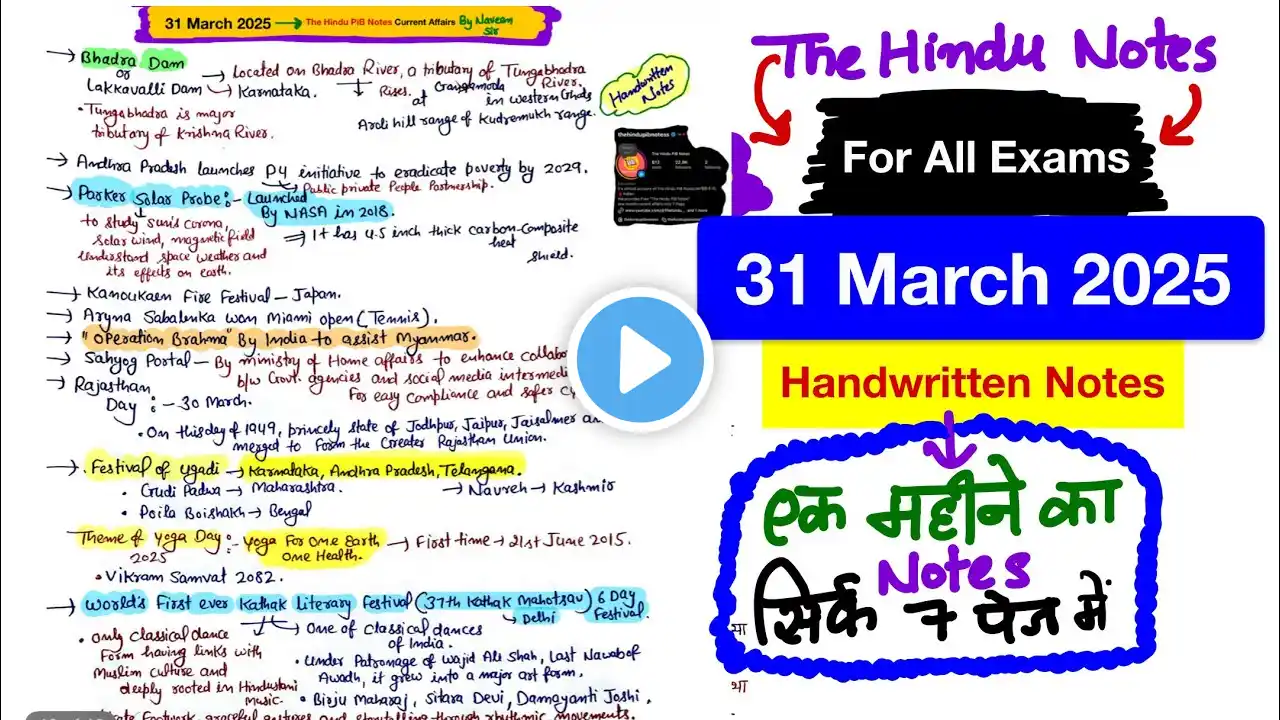 31 March 2025 → The Hindu PiB Notes Current Affairs By Naveen Sir
→ Bhadra Dam
or
Lakkavalli Dam
→ Located on Bhadra River, a tributary of Tungabhadra River.
→ Karnataka.
Rises. at Gangamoola in Western Ghats
Aroli hill range of Kudremukh range.
• Tungabhadra is major
tributary of Krishna River.
Handwritten
Notes
→ Andhra Pradesh launches P4 initiative to eradicate poverty by 2029.
Public private People Partnership.
→ Parker Solar Probe:- Launched
By NASA in 2018
to study sun's
solar wind, magnetic field
understand space weather and
its effects on earth.
⇒ It has 4.5 inch thick carbon-composite
heat shield.
→ Kanoukaen Fire Festival – Japan.
→ Aryna Sabalenka won Miami open (Tennis).
→ "Operation Brahma" By India to assist Myanmar.
→ Sahyog Portal – By ministry of Home affairs to enhance
b/w Govt. agencies and social media
For easy compliance and safer
→ Rajasthan
Day :- 30 March.
• On this day of 1949, princely state of Jodhpur, Jaipur, Jaisalmer
merged to form the Greater Rajasthan Union.
→ . Festival of ugadi → Karnataka, Andhra Pradesh, Telangana.
• Gudi Padwa → Maharashtra.
→ Navreh → Kashmir
• Poila Boishakh → Bengal
Theme of Yoga Day :- Yoga For One Earth
2025
One Health.
→ First time → 21st June 2015.
• Vikram Samvat 2082.
→ World's First ever Kathak Literary Festival (37th Kathak Mahotsav) 6 Day
→ Delhi Festival.
• only classical dance
Form having links with
muslim culture and
deeply rooted in Hindustani
music.
→ One of classical dances
of India.
• Under Patronage of Wajid Ali Shah, Last Nawab of
Awadh, it grew into a major art form.
• Birju Maharaj, Sitara Devi, Damayanti Joshi,
footwork, graceful gestures and storytelling through rhythmic movements.
thehindupibnotess
The Hindu PiB Notes
The Hindu Notes
For All Exams
31 March 2025
Handwritten Notes
एक महीने का
Notes
सिर्फ 7 पेज में
या
था